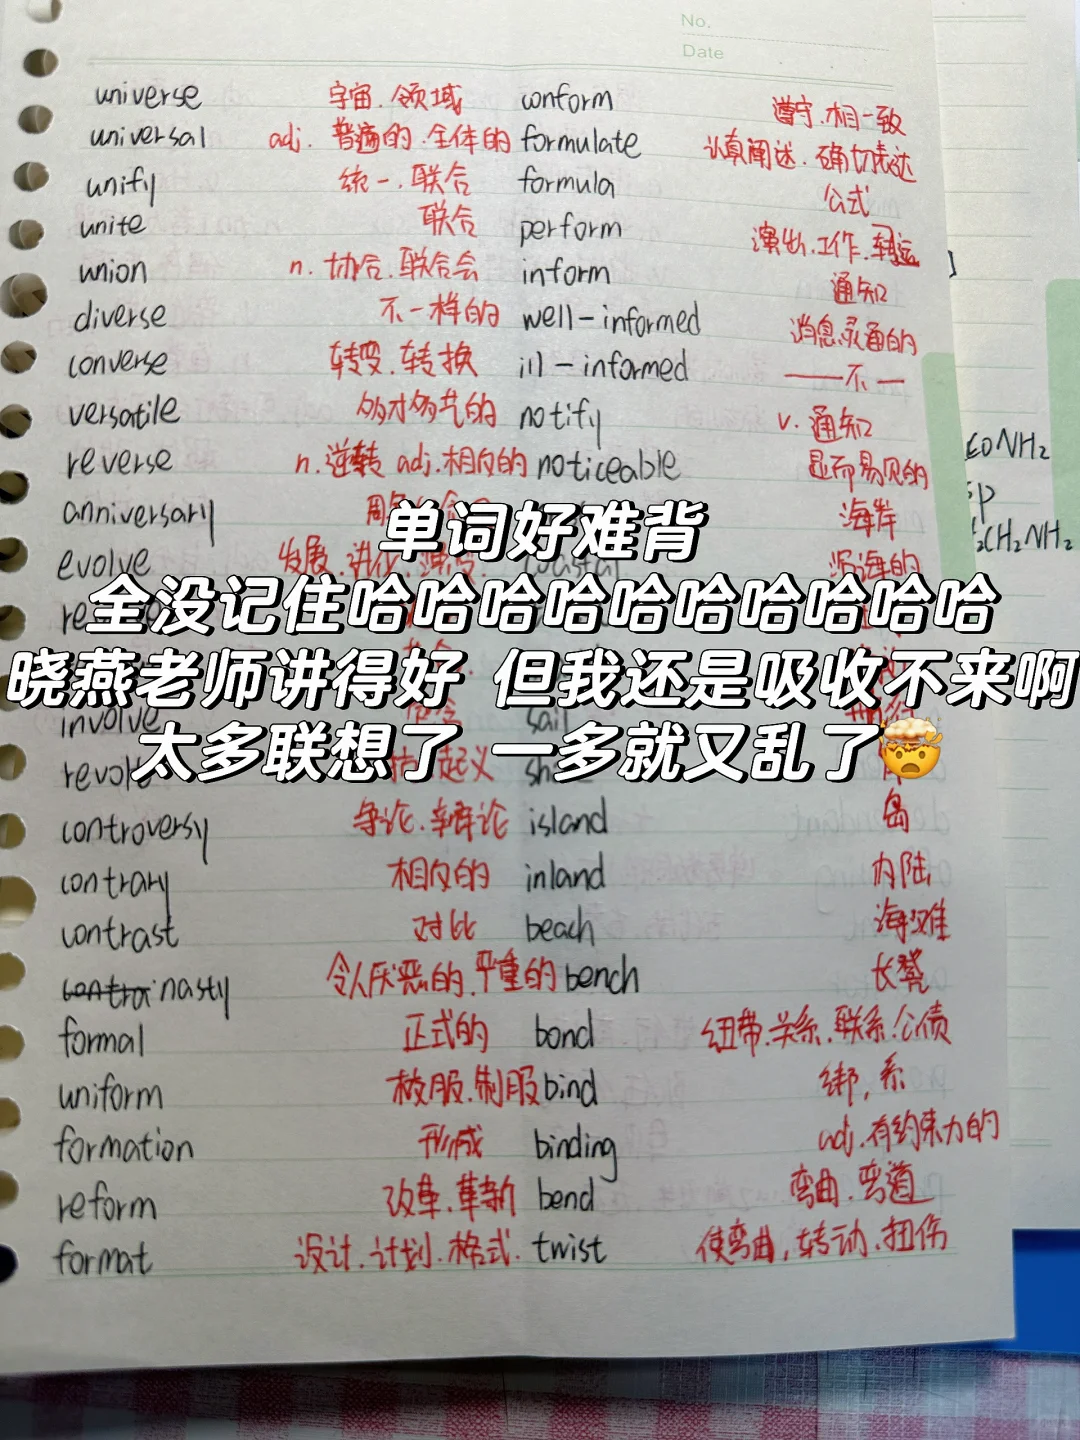 No.
Date
universe 宇宙.领域 conform 遵守.相一致
universal adj. 普遍的.全体的 formulate 认真阐述.确切表达
unify 统一.联合 formula 公式
unite 联合 perform 演出.工作.运
union n.协会.联合会 inform 通知
diverse 不一样的 well-informed 消息灵通的
converse 转变.转换 ill-informed ——不—
versatile 多才多艺的 notify v.通知
reverse n.逆转 adj.相反的 noticeable 显而易见的
anniversary 周年 海岸
单词好难背
evolve 发展.进化.演变 coastal 沿海的
全没记住哈哈哈哈哈哈哈哈哈哈
晓燕老师讲得好 但我还是吸收不来啊
involve sail
太多联想了 一多就又乱了🤯
revolt 起义
controversy 争论.辩论 island 岛
contrary 相反的 inland 内陆
contrast 对比 beach 海滩
nasty 令人厌恶的.严重的 bench 长凳
formal 正式的 bond 纽带.关系.联系.公债
uniform 校服.制服 bind 绑,系
formation 形成 binding adj.有约束力的
reform 改革.革新 bend 弯曲.弯道
format 设计.计划.格式. twist 使弯曲,转动.扭伤
CONH₂
sp
CH₂NH₂